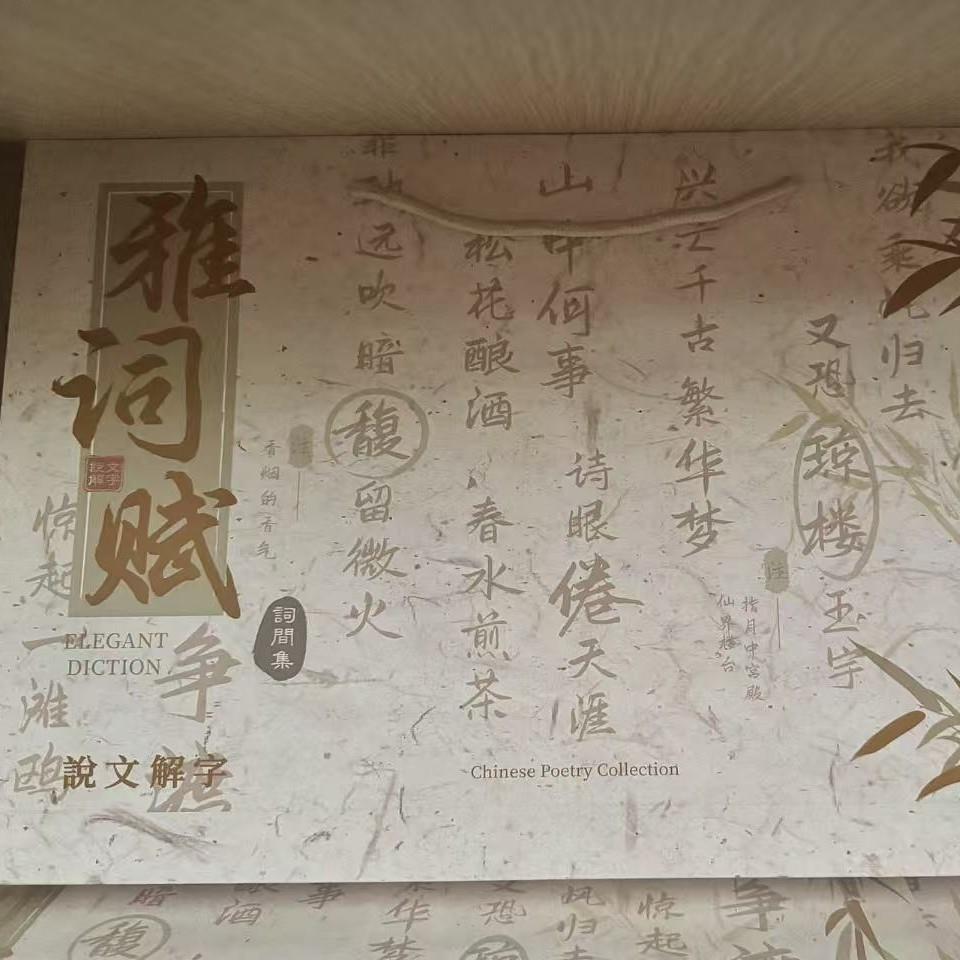 雅词赋
說文解字
ELEGANT
DICTION
詞間集
說文解字
Chinese Poetry Collection
欲乘
归去
又恐琼楼玉宇
注
指月中宫殿
仙界楼台
兴亡千古繁华梦
诗眼倦天涯
山中何事
松花酿酒
春水煎茶
远吹暗馥留微火
注
香烟的香气
争
惊起一滩鸥
馥
酒
事
华梦
恐
归
惊起
争